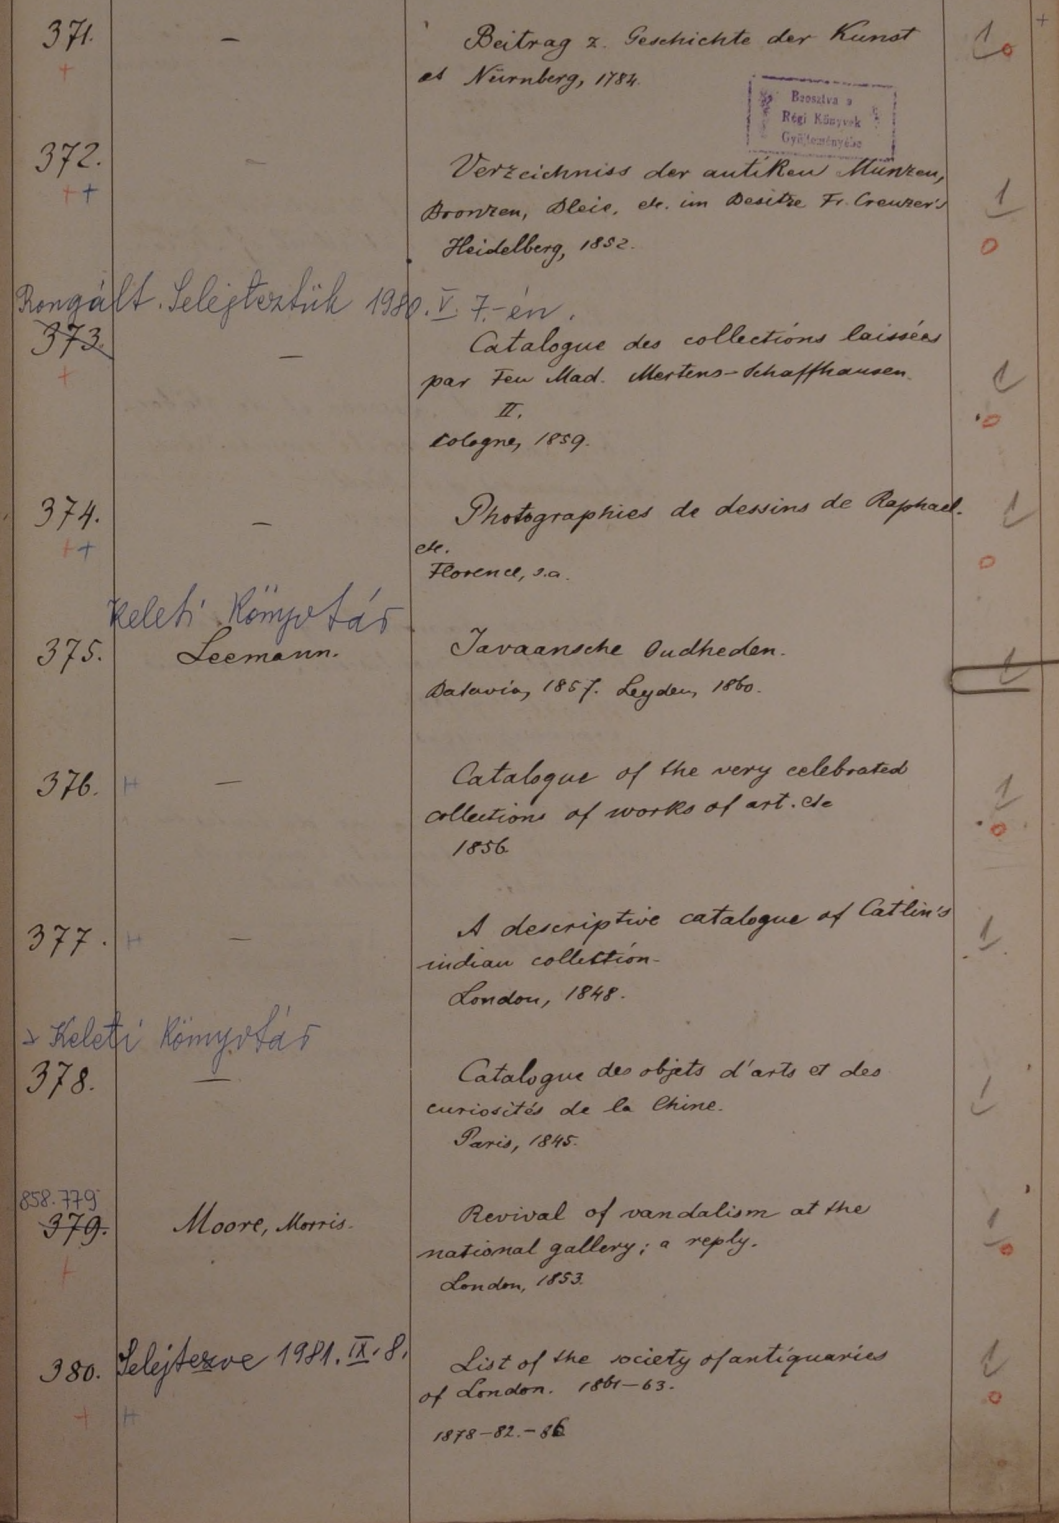 371. — Beitrag z. Geschichte der Kunst
et Nürnberg, 1784.
Beosztva a
Régi Könyvek
Gyűjteményébe
372. — Verzeichniss der antiken Münzen,
Bronzen, Bleie, etc. im Besitze Fr. Creuzer's
Heidelberg, 1852.
Rongált. Selejteztük 1980. V. 7.-én.
373. — Catalogue des collections laissées
par Feu Mad. Mertens-Schaffhausen.
II.
Cologne, 1859.
374. — Photographies de dessins de Raphael.
etc.
Florence, s.a.
Keleti Könyvtár
375. Leemann. Javaansche Oudheden.
Batavia, 1857. Leyden, 1860.
376. — Catalogue of the very celebrated
collections of works of art. etc
1856
377. — A descriptive catalogue of Catlin's
indian collection.
London, 1848.
Keleti Könyvtár
378. — Catalogue des objets d'arts et des
curiosités de la Chine.
Paris, 1845.
858.779
379. Moore, Morris. Revival of vandalism at the
national gallery; a reply.
London, 1853.
380. Selejtezve 1981. IX. 8. List of the society of antiquaries
of London. 1861—63.
1878—82.—86